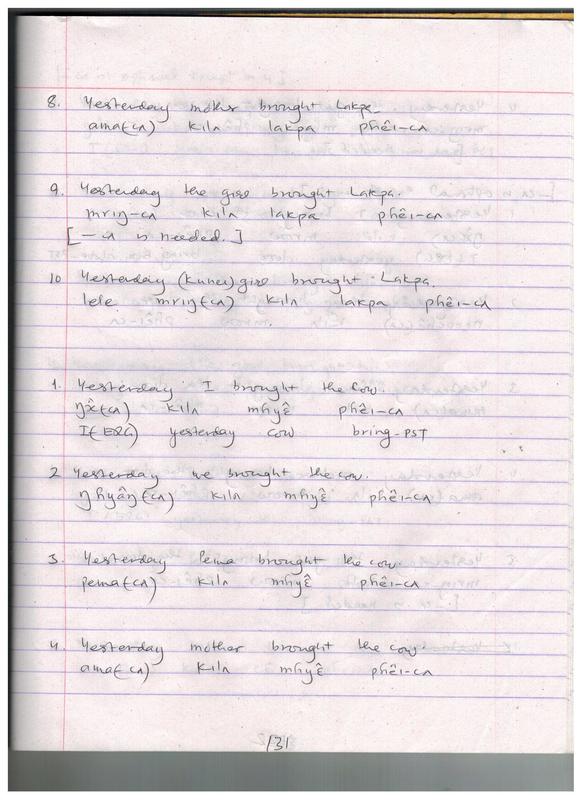 8. Yesterday mother brought Lakpa
ama(-cʌ) kilʌ lakpa phêi-cʌ
9. Yesterday the girl brought Lakpa.
mrıŋ-cʌ kilʌ lakpa phêi-cʌ
[-cʌ is needed.]
10 Yesterday girl brought Lakpa.
lele mrıŋ(-cʌ) kilʌ lakpa phêi-cʌ
1. Yesterday I brought the cow.
kilʌ mɦyɛ̂ phêi-cʌ
I(-ERG) yesterday cow bring-PST
2 Yesterday we brought the cow.
ŋɦyâŋ(-cʌ) kilʌ mɦyɛ̂ phêi-cʌ
3. Yesterday Pema brought the cow
pema(-cʌ) kilʌ mɦyɛ̂ phêi-cʌ
4. Yesterday mother brought the cow.
ama(-cʌ) kilʌ mɦyɛ̂ phêi-cʌ
131